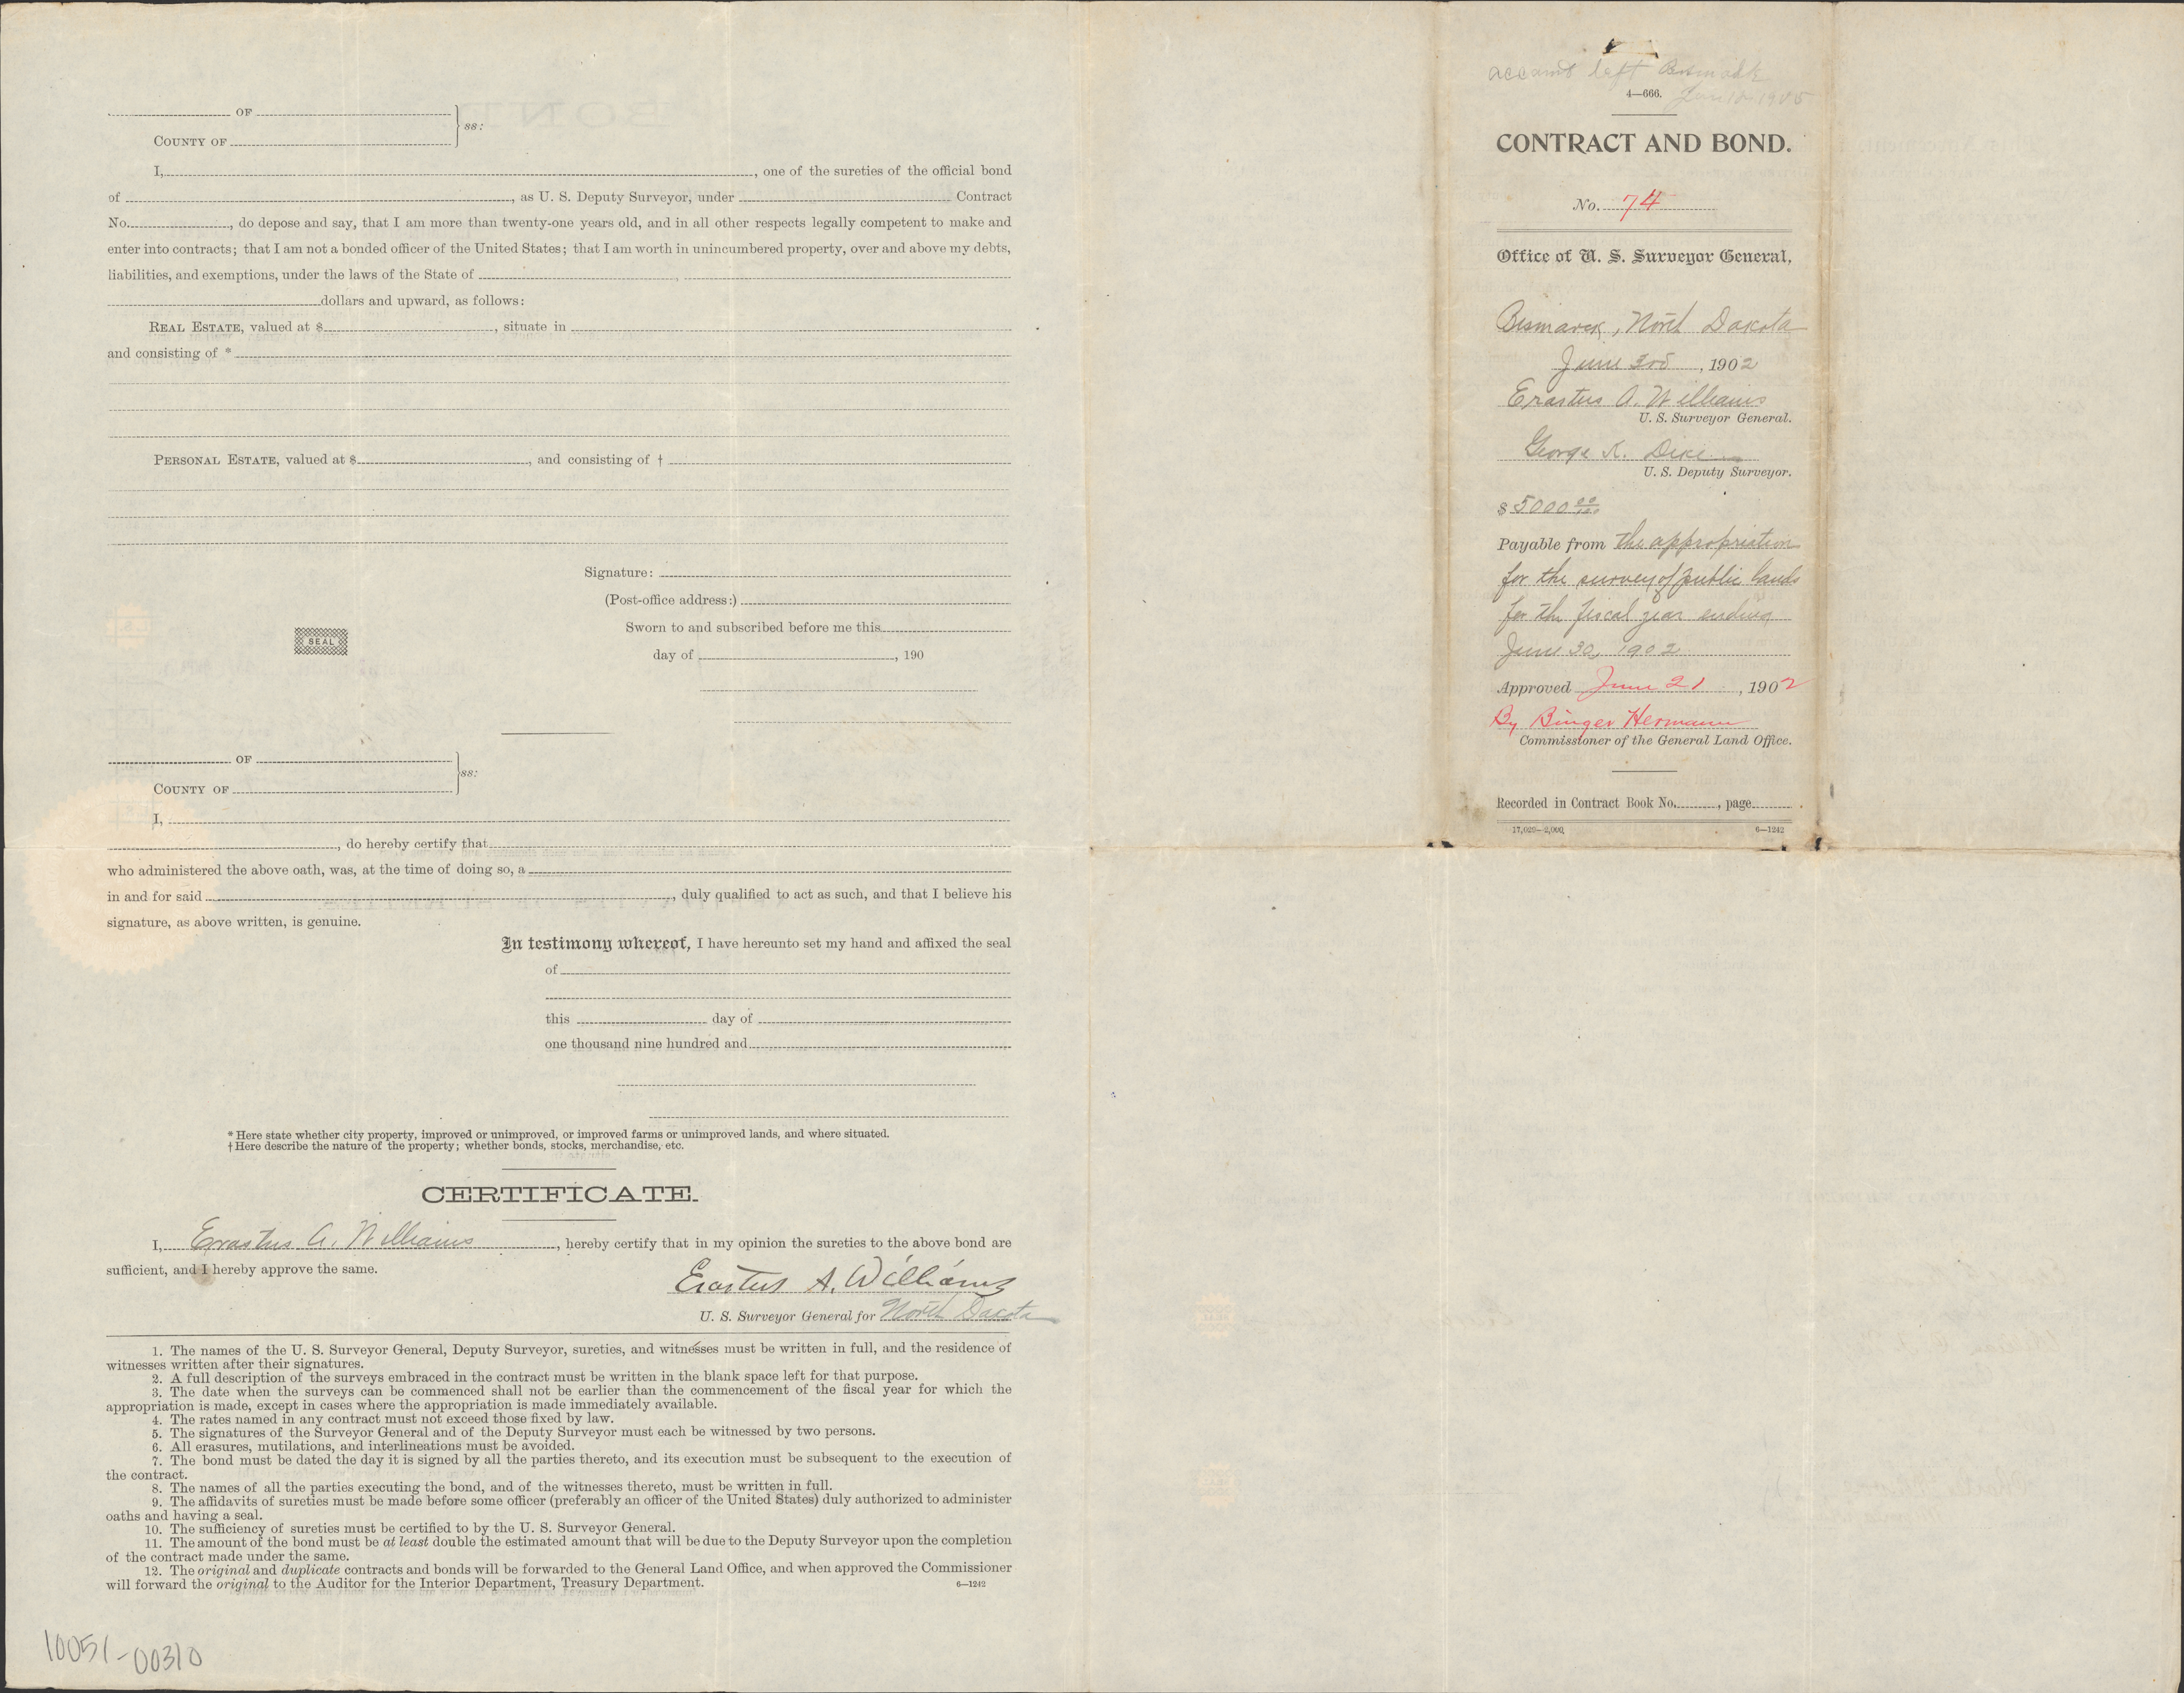 OF
COUNTY OF
ss:
I, , one of the sureties of the official bond
of , as U. S. Deputy Surveyor, under Contract
No. , do depose and say, that I am more than twenty-one years old, and in all other respects legally competent to make and
enter into contracts; that I am not a bonded officer of the United States; that I am worth in unincumbered property, over and above my debts,
liabilities, and exemptions, under the laws of the State of ,
dollars and upward, as follows:
REAL ESTATE, valued at $ , situate in
and consisting of *
PERSONAL ESTATE, valued at $ , and consisting of †
Signature:
(Post-office address:)
Sworn to and subscribed before me this
SEAL
day of , 190
OF
COUNTY OF
ss:
I,
, do hereby certify that
who administered the above oath, was, at the time of doing so, a
in and for said , duly qualified to act as such, and that I believe his
signature, as above written, is genuine.
In testimony whereof, I have hereunto set my hand and affixed the seal
of
this day of
one thousand nine hundred and
* Here state whether city property, improved or unimproved, or improved farms or unimproved lands, and where situated.
† Here describe the nature of the property; whether bonds, stocks, merchandise, etc.
CERTIFICATE.
I, Erastus A. Williams , hereby certify that in my opinion the sureties to the above bond are
sufficient, and I hereby approve the same.
Erastus A. Williams
U. S. Surveyor General for North Dakota
1. The names of the U. S. Surveyor General, Deputy Surveyor, sureties, and witnesses must be written in full, and the residence of
witnesses written after their signatures.
2. A full description of the surveys embraced in the contract must be written in the blank space left for that purpose.
3. The date when the surveys can be commenced shall not be earlier than the commencement of the fiscal year for which the
appropriation is made, except in cases where the appropriation is made immediately available.
4. The rates named in any contract must not exceed those fixed by law.
5. The signatures of the Surveyor General and of the Deputy Surveyor must each be witnessed by two persons.
6. All erasures, mutilations, and interlineations must be avoided.
7. The bond must be dated the day it is signed by all the parties thereto, and its execution must be subsequent to the execution of
the contract.
8. The names of all the parties executing the bond, and of the witnesses thereto, must be written in full.
9. The affidavits of sureties must be made before some officer (preferably an officer of the United States) duly authorized to administer
oaths and having a seal.
10. The sufficiency of sureties must be certified to by the U. S. Surveyor General.
11. The amount of the bond must be at least double the estimated amount that will be due to the Deputy Surveyor upon the completion
of the contract made under the same.
12. The original and duplicate contracts and bonds will be forwarded to the General Land Office, and when approved the Commissioner
will forward the original to the Auditor for the Interior Department, Treasury Department.
6—1242
10051-00310
account left Bismark
4—666. 1905
CONTRACT AND BOND.
No. 74
Office of U. S. Surveyor General,
Bismarck, North Dakota
June 3rd , 1902
Erastus A. Williams
U. S. Surveyor General.
George K.
U. S. Deputy Surveyor.
$ 5000 00/100
Payable from the appropriation
for the survey of public lands
for the fiscal year ending
June 30, 1902
Approved June 21 , 1902
By Binger Hermann
Commissioner of the General Land Office.
Recorded in Contract Book No. , page .
17,029—2,000 6—1242